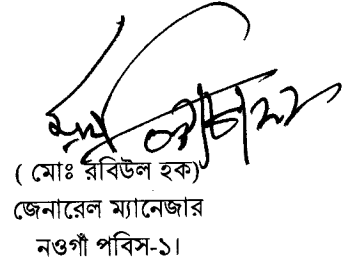 ( মোঃ রবিউল হক)
জেনারেল ম্যানেজার
নওগাঁ পবিস-১।